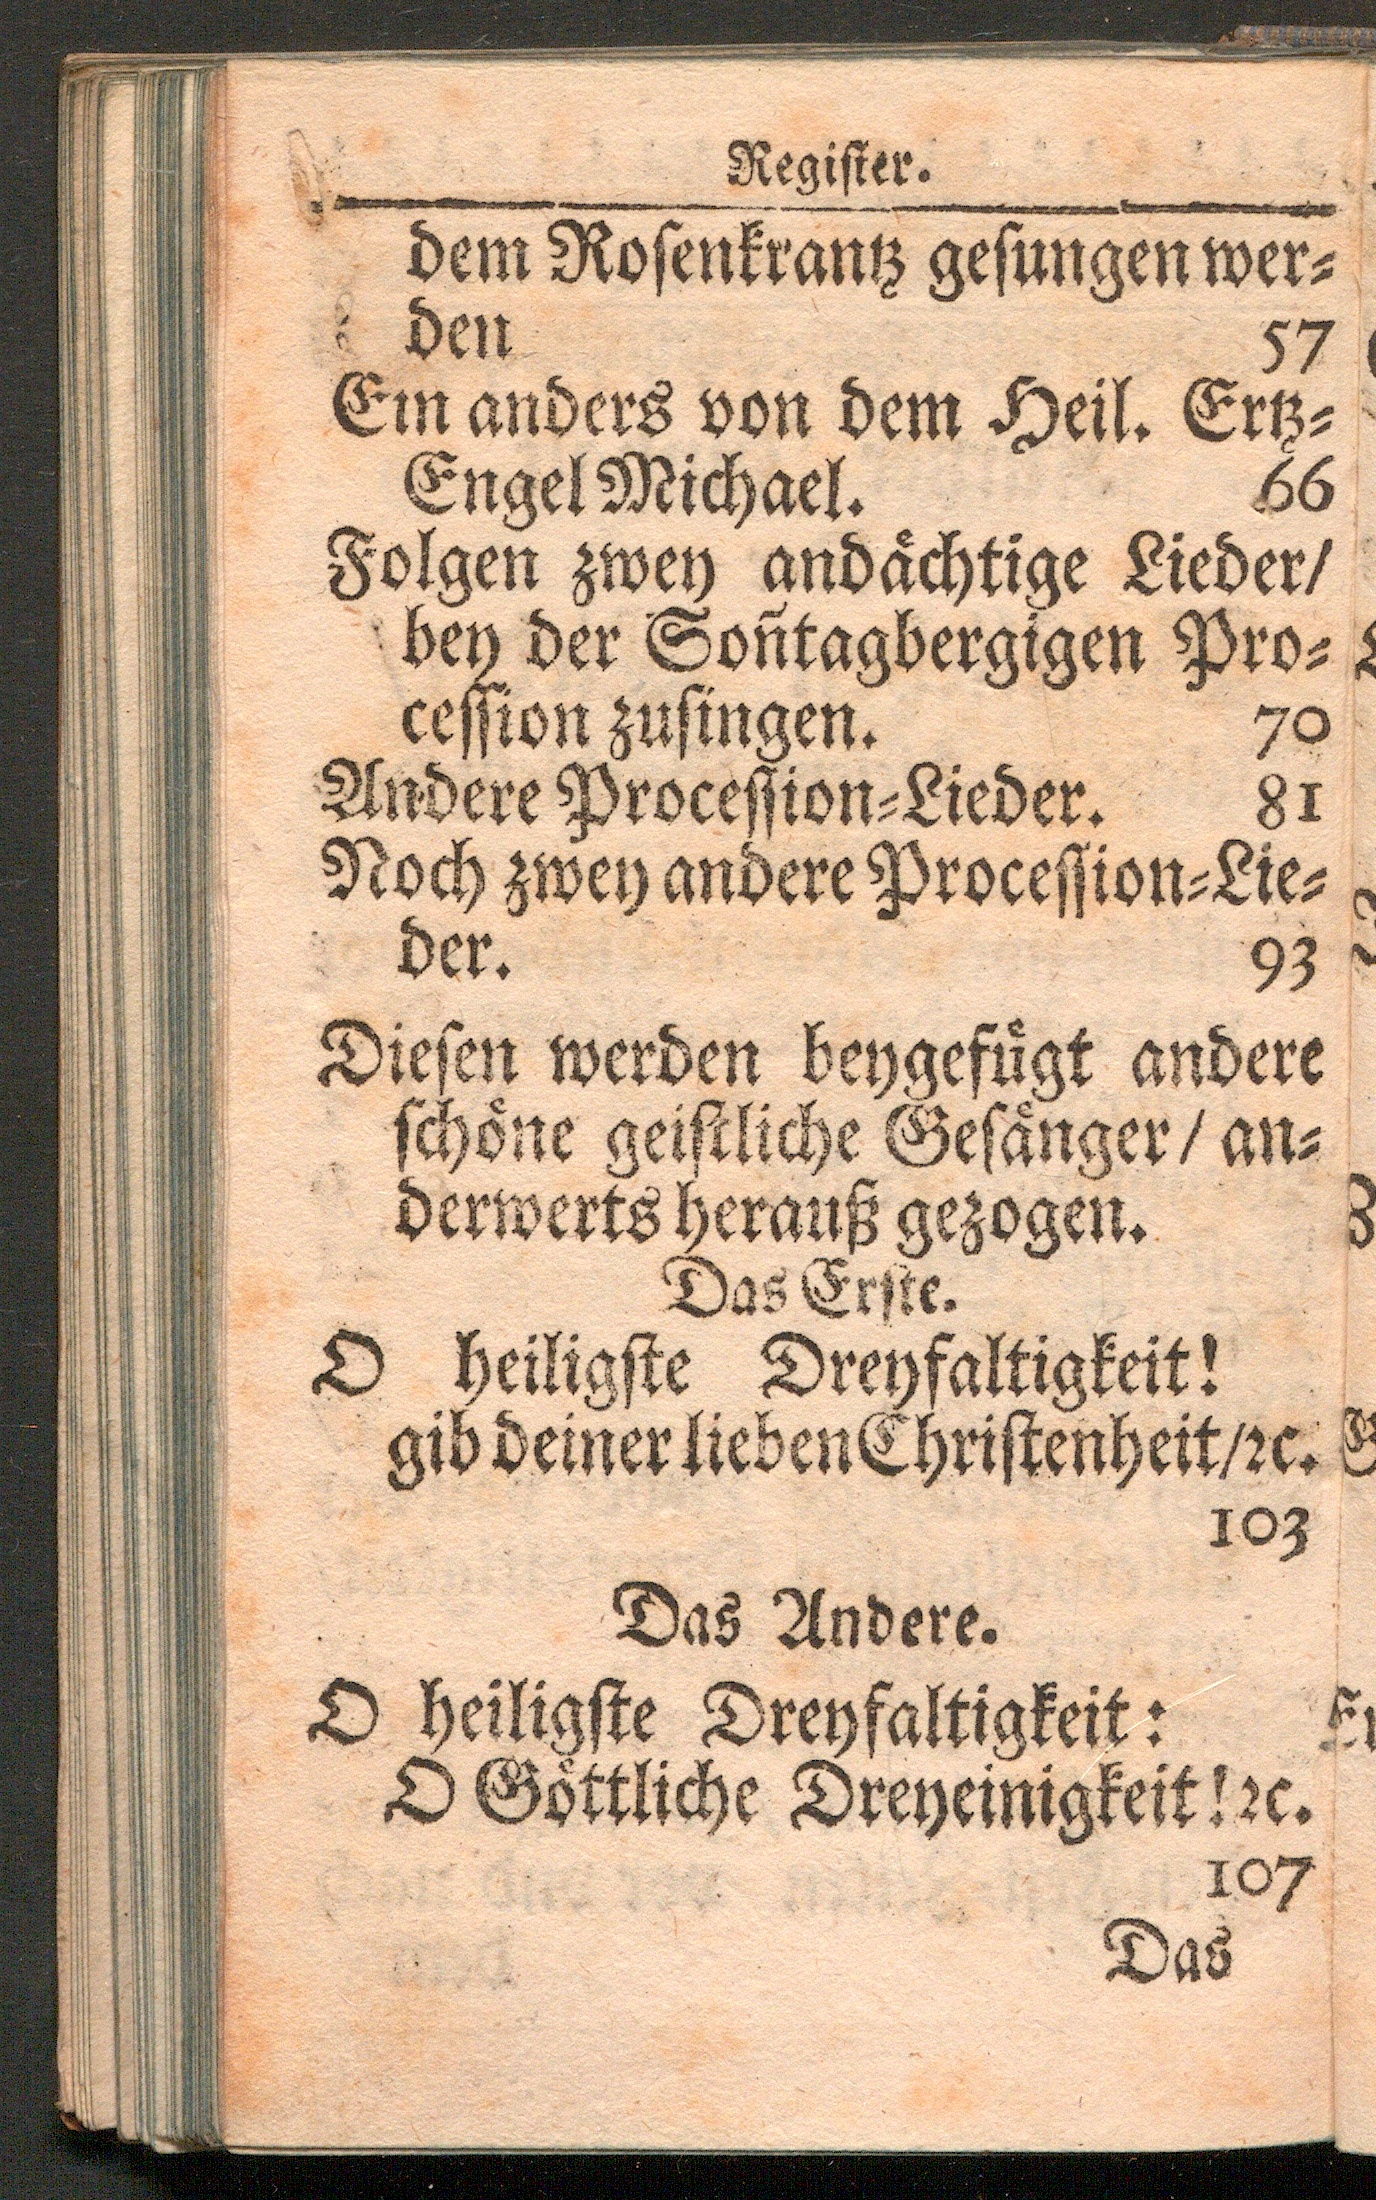 Regiſter.
dem Roſenkrantz geſungen wer⸗
den 57
Ein anders von dem Heil. Ertz⸗
Engel Michael. 66
Folgen zwey andaͤchtige Lieder/
bey der Son̄tagbergigen Pro⸗
ceſſion zuſingen. 70
Andere Proceſſion⸗Lieder. 81
Noch zwey andere Proceſſion⸗Lie⸗
der. 93
Dieſen werden beygefuͤgt andere
ſchoͤne geiſtliche Geſaͤnger/ an⸗
derwerts herauß gezogen.
Das Erſte.
O heiligſte Dreyfaltigkeit!
gib deiner lieben Chriſtenheit/ ꝛc.
103
Das Andere.
O heiligſte Dreyfaltigkeit:
O Goͤttliche Dreyeinigkeit! ꝛc.
107
Das